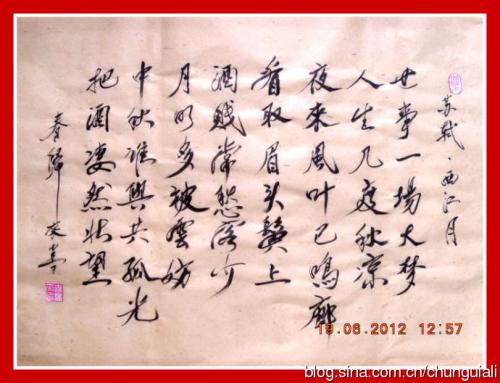 苏轼·西江月
世事一場大梦
人生几度秋凉
夜來風叶已鳴廊
看取眉头鬓上
酒賤常愁客少
月明多被雲妨
中秋谁與共孤光
把酒凄然北望
春歸
19.06.2012 12:57
blog.sina.com.cn/chunguiali